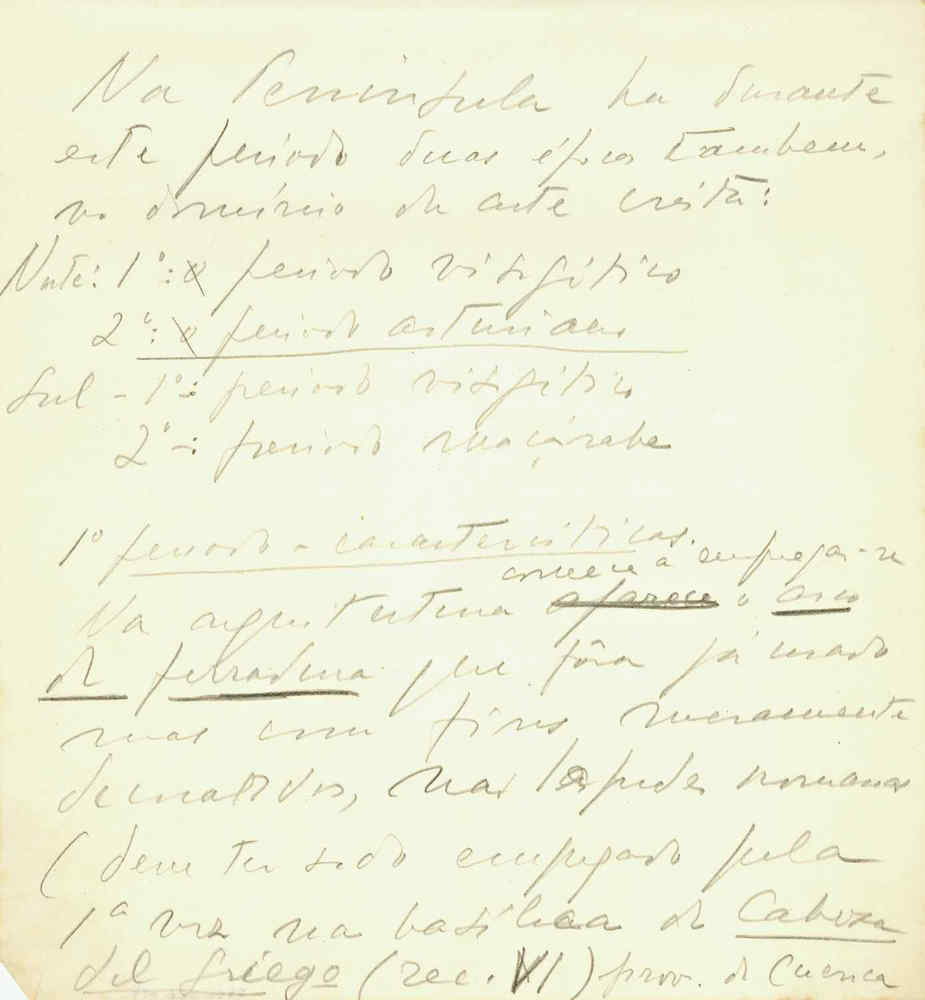 Na Peninsula ha durante
este periodo duas épocas tambem,
no dominio da arte cristã:
Norte: 1º: o periodo visigótico
2º: o periodo asturiano
Sul - 1º: periodo visigótico
2º -: periodo moçárabe
1º periodo - caracteristicas.
comeca a empregar-se
Na arquitectura aparece o arco
de ferradura que fôra já usado
mas com fins meramente
decorativos, nas lapides romanas
(deve ter sido empregado pela
1ª vez na basilica de Cabeza
del Griego (sec. VI) prov. de Cuenca